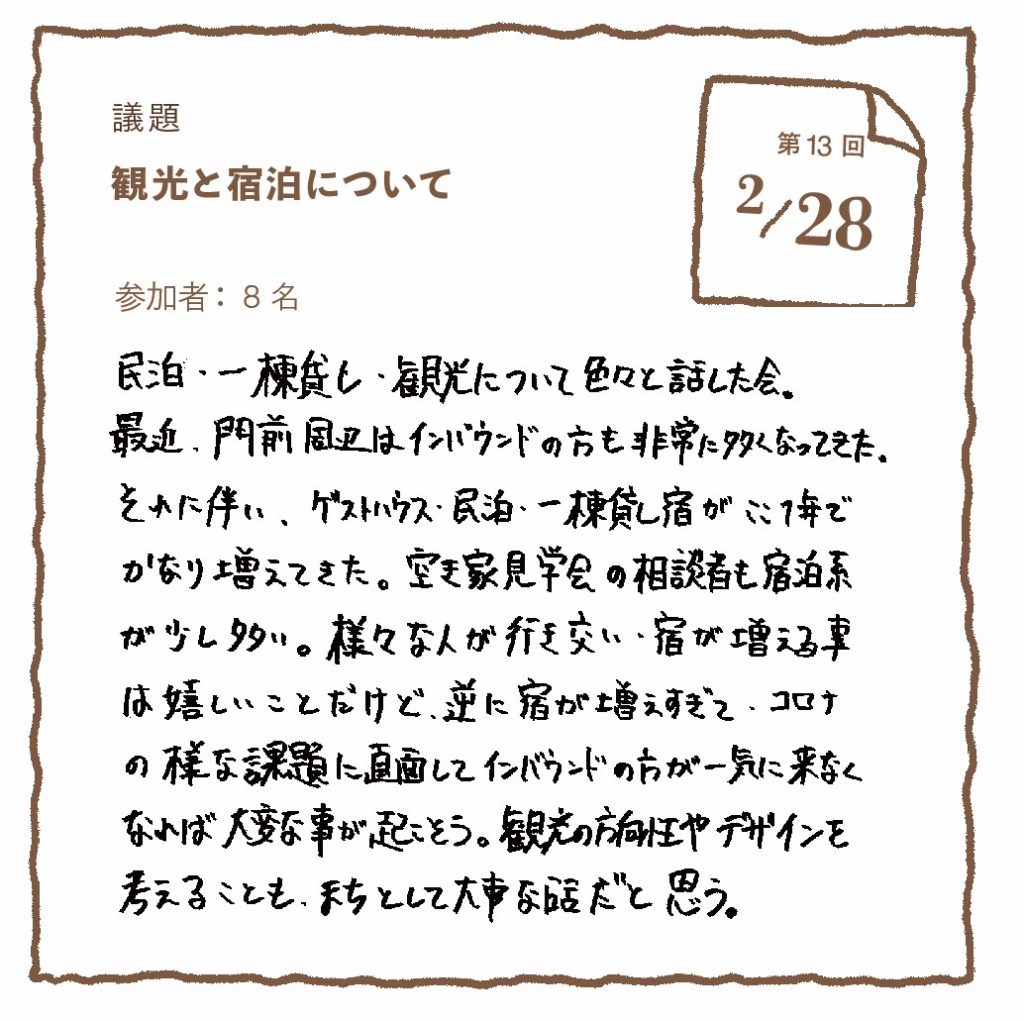 議題
第13回
2/28
観光と宿泊について
参加者：8名
民泊・一棟貸し・観光について色々と話した会。
最近、門前周辺はインバウンドの方も非常に多くなってきた。
それに伴い、ゲストハウス・民泊・一棟貸し宿がここ1年で
かなり増えてきた。空き家見学会の相談者も宿泊系
が少し多い。様々な人が行き交い、宿が増える事
は嬉しいことだけど、逆に宿が増えすぎて、コロナ
の様な課題に直面してインバウンドの方が一気に来なく
なれば大変な事が起こそう。観光の方向性やデザインを
考えることも、まちとして大事な話だと思う。